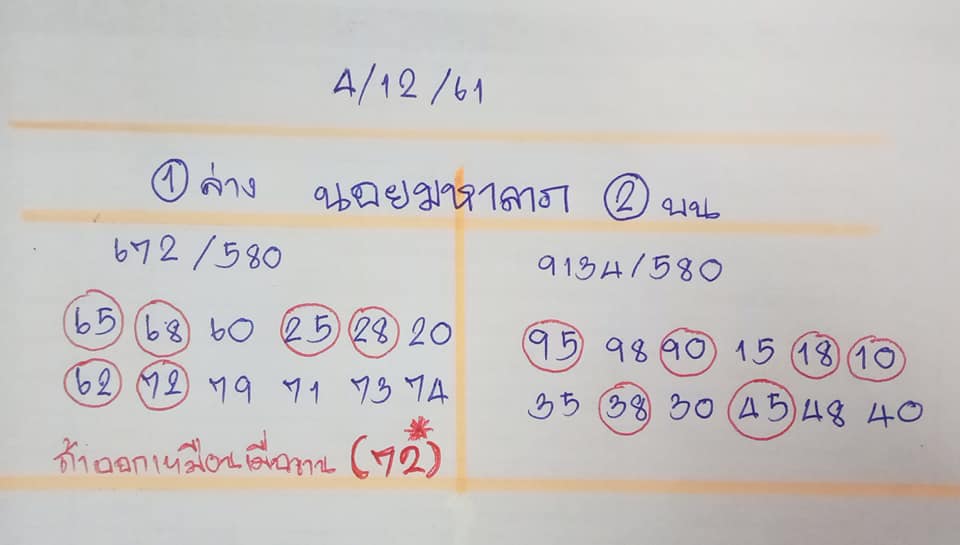 4/12/61
① ล่าง นอยมหาลาภ ② บน
672/580
65 68 60 25 28 20
62 72 79 71 73 74
ถ้าออกเหมือนเมื่อวาน (72)*
9134/580
95 98 90 15 18 10
35 38 30 45 48 40